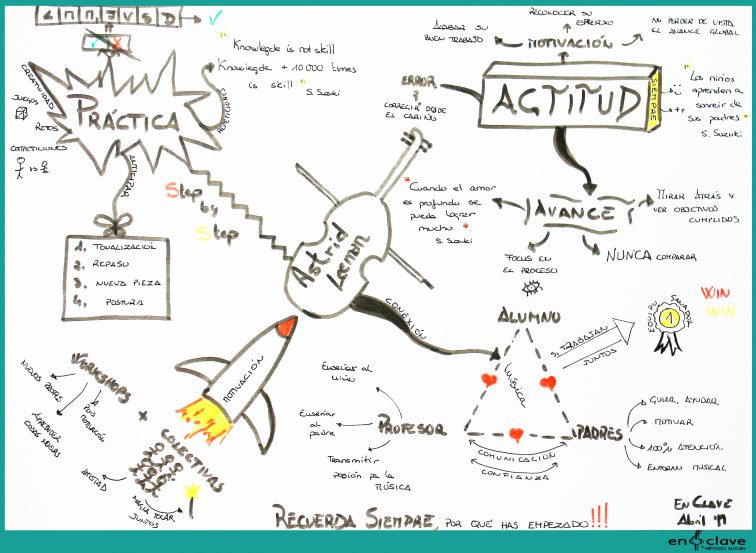 Knowlegde is not skill
Knowlegde + 10000 times
is skill
S. Suzuki
PRÁCTICA
CREATIVIDAD
JUEGOS
RETOS
COMPETICIONES
VS
REPETICIONES
ANTICIPAR
1. TONALIZACIÓN
2. REPASO
3. NUEVA PIEZA
4. POSTURA
Step
by
Step
Astrid
CONEXIÓN
ACABAR SU
BUEN TRABAJO
RECONOCER SU
ESFUERZO
MOTIVACIÓN
NO PERDER DE VISTA
EL AVANCE GLOBAL
ERROR
CORREGIR DESDE
EL CARIÑO
ACTITUD
SIEMPRE
"Los niños
aprenden a
sonreir de
sus padres"
S. Suzuki
"Cuando el amor
es profundo se
puede lograr
mucho"
S. Suzuki
AVANCE
MIRAR ATRÁS Y
VER OBJETIVOS
CUMPLIDOS
FOCUS EN
EL PROCESO
NUNCA COMPARAR
ALUMNO
TRABAJAN
JUNTOS
EQUIPO GANADOR
1
WIN
WIN
MÚSICA
PROFESOR
Enseñar al
niño
Enseñar
al
padre
Transmitir
pasión pa la
MÚSICA
PADRES
GUIAR, AYUDAR
MOTIVAR
100% ATENCIÓN
ENTORNO MUSICAL
COMUNICACIÓN
CONFIANZA
MOTIVACIÓN
WORKSHOPS
NUEVOS PROFES
MOTIVACIÓN
APRENDER
COSAS NUEVAS
x
COLECTIVAS
AMISTAD
MAGIA TOCAR
JUNTOS
RECUERDA SIEMPRE, POR QUÉ HAS EMPEZADO!!!
EN CLAVE
Abril '19
enclave
MÉTODO SUZUKI